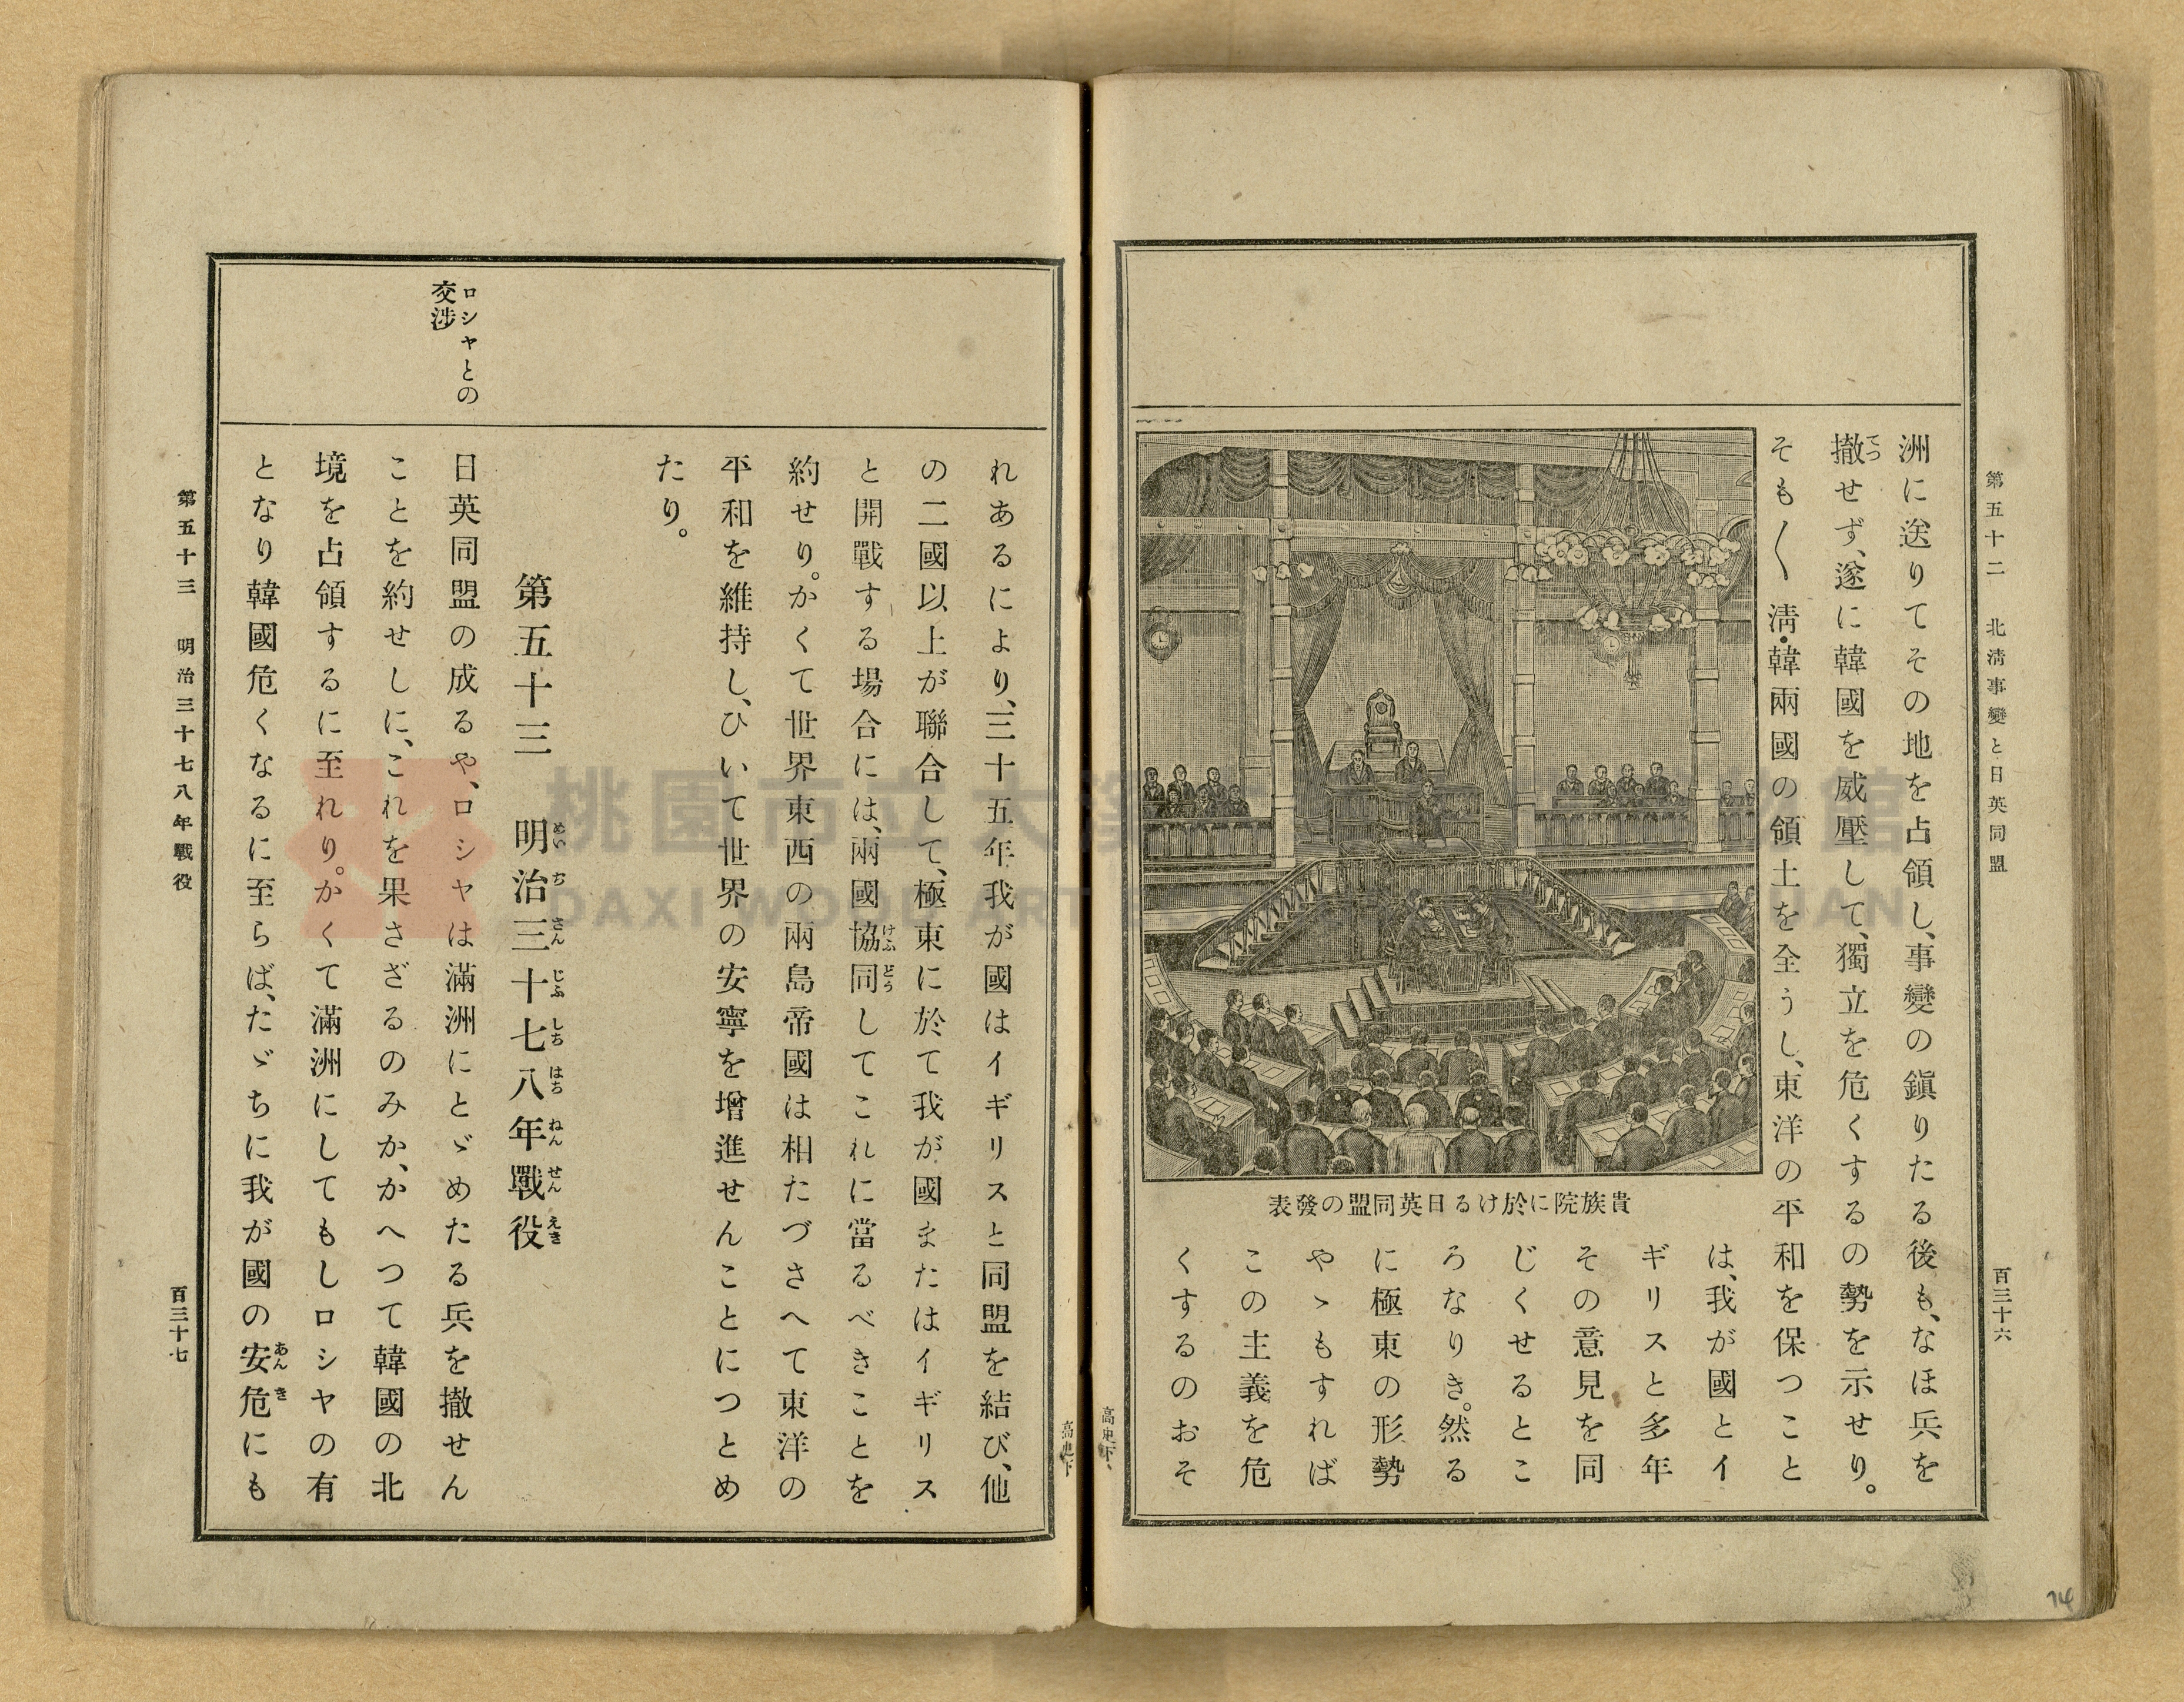 第五十二　北淸事變と日英同盟
百三十六
洲に送りてその地を占領し、事變の鎭りたる後も、なほ兵を
撤せず、遂に韓國を威壓して、獨立を危くするの勢を示せり。
てつ
そも〱淸・韓兩國の領土を全うし、東洋の平和を保つこと
は、我が國とイ
ギリスと多年
その意見を同
じくせるとこ
ろなりき。然る
に極東の形勢
やゝもすれば
この主義を危
くするのおそ
貴族院に於ける日英同盟の發表
高史下
高史下
れあるにより、三十五年我が國はイギリスと同盟を結び、他
の二國以上が聯合して、極東に於て我が國またはイギリス
と開戰する場合には、兩國協同してこれに當るべきことを
けふどう
約せり。かくて世界東西の兩島帝國は相たづさへて東洋の
平和を維持し、ひいて世界の安寧を增進せんことにつとめ
たり。
第五十三　明治三十七八年戰役
めいぢさんじふしちはちねんせんえき
ロシヤとの
交渉
日英同盟の成るや、ロシヤは滿洲にとゞめたる兵を撤せん
ことを約せしに、これを果さざるのみか、かへつて韓國の北
境を占領するに至れり。かくて滿洲にしてもしロシヤの有
となり韓國危くなるに至らば、たゞちに我が國の安危にも
あんき
第五十三　明治三十七八年戰役
百三十七
74
桃園市立大
館
DAXI WOOD ART